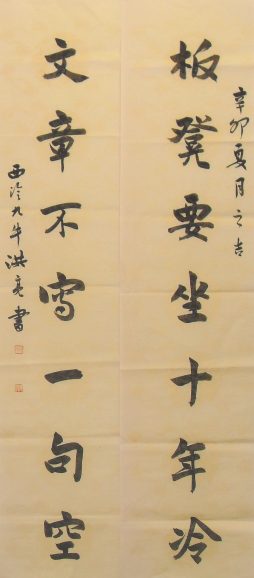 辛卯夏月之吉
板凳要坐十年冷
文章不写一句空
西泠九牛洪亮书